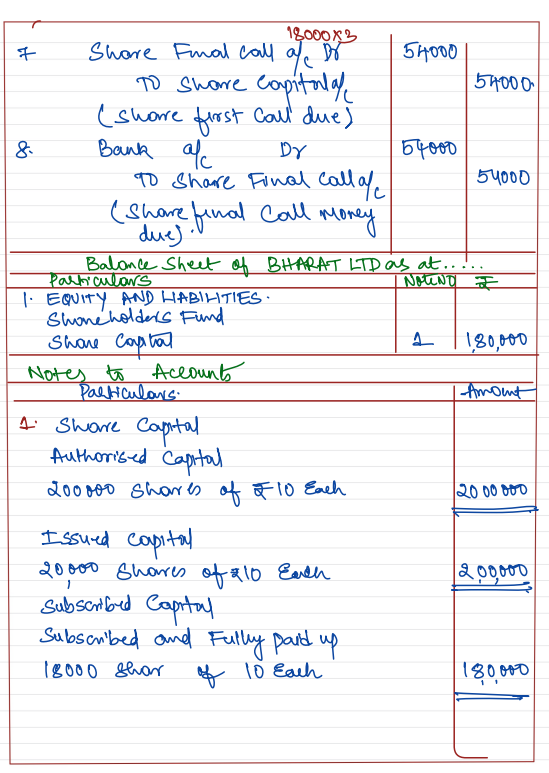 18000x3
7 Share Final Call a/c Dr 54000
To Share Capital a/c 54000
(Share first Call due)
8. Bank a/c Dr 54000
To Share Final Call a/c 54000
(Share final Call Money
due).
Balance Sheet of BHARAT LTD as at.....
Particulars Note No ₹
1. EQUITY AND LIABILITIES.
Shareholders Fund
Share Capital 1 1,80,000
Notes to Accounts
Particulars. Amount
1. Share Capital
Authorised Capital
200000 Shares of ₹10 Each 2000000
Issued Capital
20,000 Shares of ₹10 Each 2,00,000
Subscribed Capital
Subscribed and Fully paid up
18000 Shar of 10 Each 1,80,000